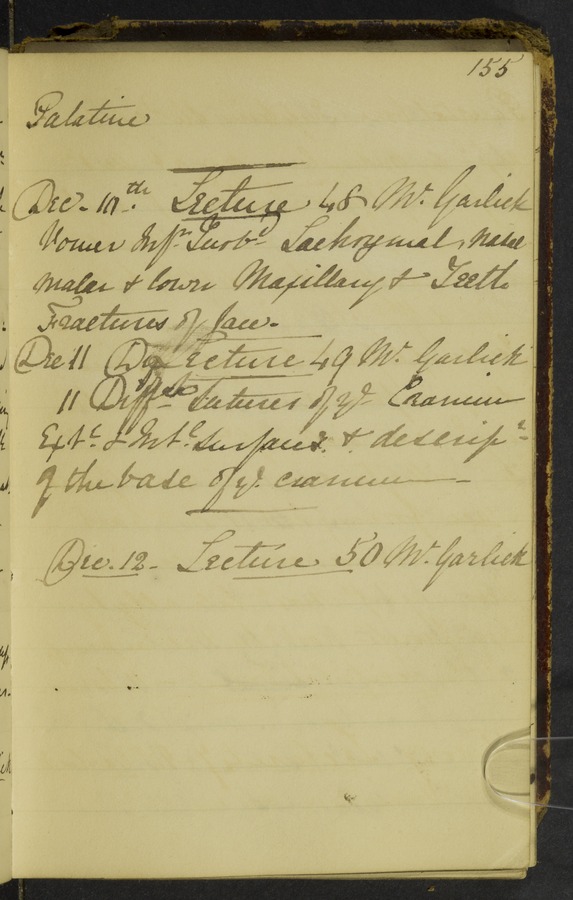 155
Palatine
Dec. 10th. Lecture 48 Mr. Garlick
Vomer Infr. Turbd. Lachrymal, nasal
malar & lower Maxillary & Teeth
Fractures of face.
Dec 11 Lecture 49 Mr. Garlick
11 Difft. Sutures of ye. Cranium
Extl. & Intl. surfaces & descripn.
of the base of ye. cranium
Dec. 12 - Lecture 50 Mr. Garlick